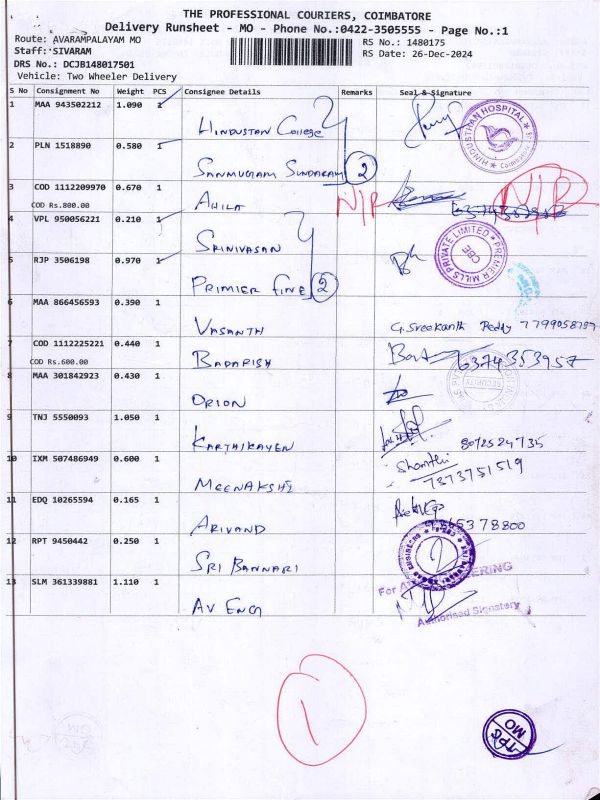 THE PROFESSIONAL COURIERS, COIMBATORE
Delivery Runsheet - MO - Phone No.:0422-3505555 - Page No.:1
Route: AVARAMPALAYAM MO
Staff: SIVARAM
DRS No.: DCJB148017501
Vehicle: Two Wheeler Delivery
RS No.: 1480175
RS Date: 26-Dec-2024
S No Consignment No Weight PCS Consignee Details Remarks Seal & Signature
1 MAA 943502212 1.090 HINDUSTAN COLLEGE
HINDUSTHAN HOSPITAL
2 PLN 1518890 0.580 1 SANMUGAM SUNDARAM 2
3 COD 1112209970 0.670 1 AHILA N/P N/P
COD Rs.800.00
4 VPL 950056221 0.210 1 SRINIVASAN
PREMIER MILLS PRIVATE LIMITED CBE
5 RJP 3506198 0.970 1 PRIMIER FINE 2
6 MAA 866456593 0.390 1 VASANTH G. Sreekanth Reddy
7 COD 1112225221 0.440 1 BADARISH 6374353957
COD Rs.600.00
SECURITY
8 MAA 301842923 0.430 1 ORION
9 TNJ 5550093 1.050 1 KARTHIKAYEN
10 IXM 507486949 0.600 1 MEENAKSHI Shanthi
7373751519
11 EDQ 10265594 0.165 1 ARIVAND
12 RPT 9450442 0.250 1 SRI BANNARI
13 SLM 361339881 1.110 1 AV ENG
For
Authorised Signatory
1
TPC
MO